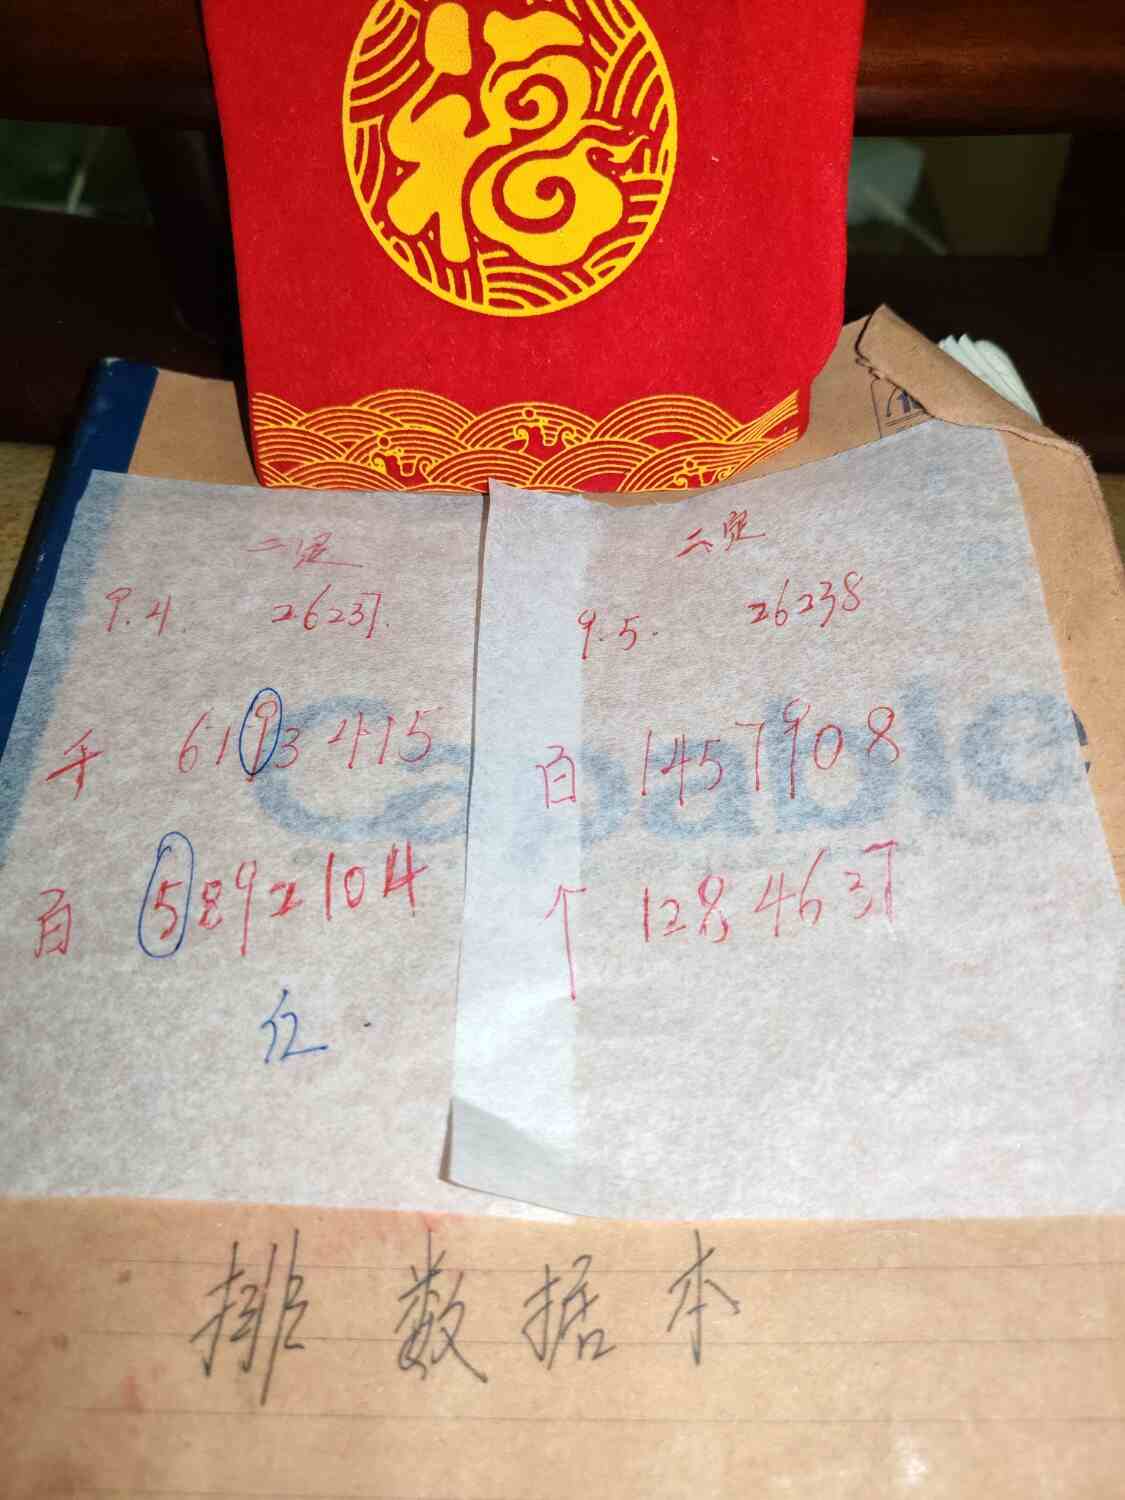 福
二定
9.4. 26237.
千 6193415
百 5892104
红.
二定
9.5. 26238
百 1457908
个 1284637
Capable
排数据本